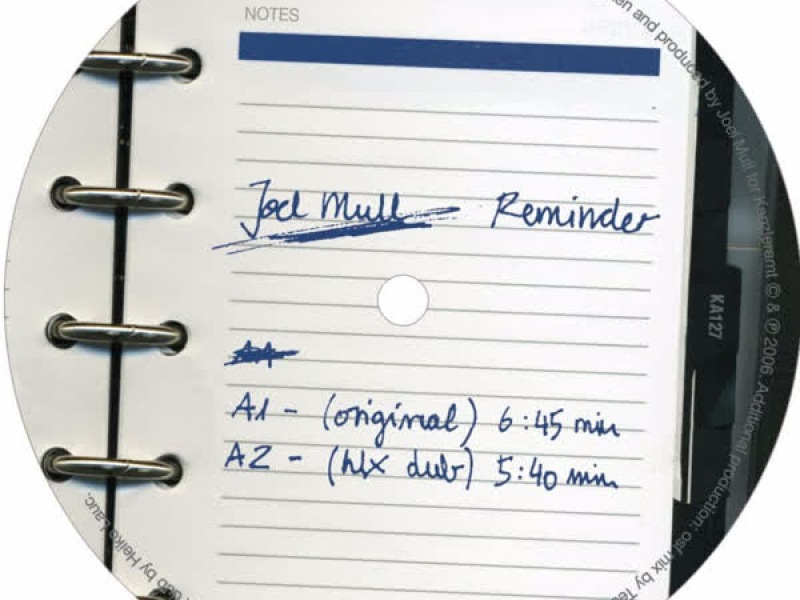 NOTES
Joel Mull - Reminder
A1 - (original) 6:45 min
A2 - (hlx dub) 5:40 min
KA127
and produced by Joel Mull for Kanzleramt © & ℗ 2006. Additional production: osf mix by
dub by Heiko Laux.